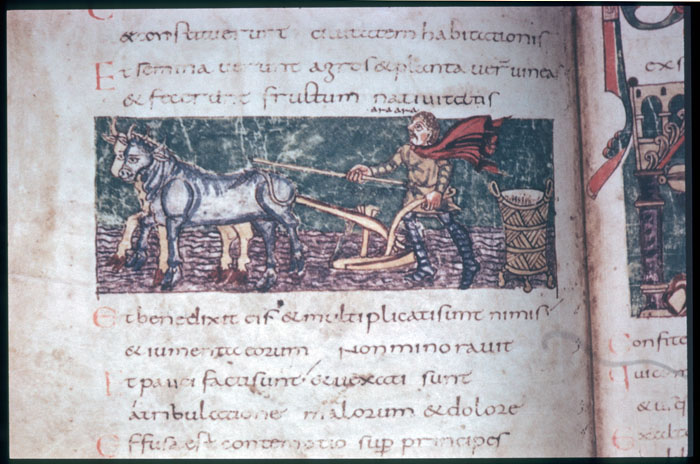 & constituerunt ciuitatem habitationis
Et seminauerunt agros & plantauer uineas
& fecerunt fructum natiuitatis
Et benedixit eis & multiplicati sunt nimis
& iumenta eorum Non minorauit
Et pauci facti sunt & uexati sunt
a tribulatione malorum & dolore
Effusa est contemtio sup principes